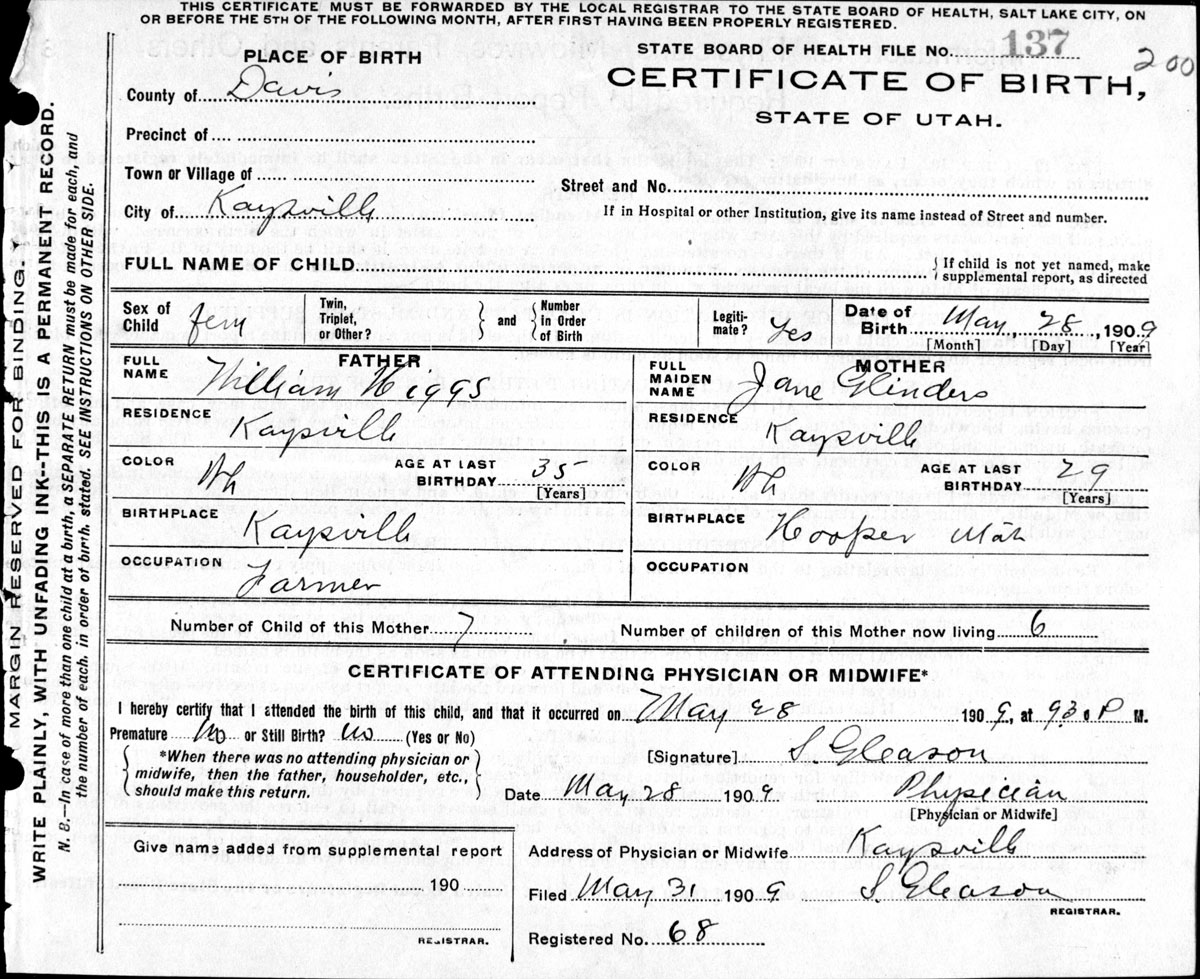 THIS CERTIFICATE MUST BE FORWARDED BY THE LOCAL REGISTRAR TO THE STATE BOARD OF HEALTH, SALT LAKE CITY, ON
OR BEFORE THE 5TH OF THE FOLLOWING MONTH, AFTER FIRST HAVING BEEN PROPERLY REGISTERED.
MARGIN RESERVED FOR BINDING.
WRITE PLAINLY, WITH UNFADING INK--THIS IS A PERMANENT RECORD.
N. B.—In case of more than one child at a birth, a SEPARATE RETURN must be made for each, and
the number of each, in order of birth, stated. SEE INSTRUCTIONS ON OTHER SIDE.
PLACE OF BIRTH
County of Davis
Precinct of
Town or Village of
City of Kaysville
STATE BOARD OF HEALTH FILE NO. 137
200
CERTIFICATE OF BIRTH,
STATE OF UTAH.
Street and No.
If in Hospital or other Institution, give its name instead of Street and number.
FULL NAME OF CHILD
If child is not yet named, make
supplemental report, as directed
Sex of Child fem
Twin, Triplet, or Other?
and
Number in Order of Birth
Legitimate? Yes
Date of Birth May 28 1909
[Month] [Day] [Year]
FATHER
FULL NAME William Higgs
RESIDENCE Kaysville
COLOR Wh AGE AT LAST BIRTHDAY 35
[Years]
BIRTHPLACE Kaysville
OCCUPATION Farmer
MOTHER
FULL MAIDEN NAME Jane Flinders
RESIDENCE Kaysville
COLOR Wh AGE AT LAST BIRTHDAY 29
[Years]
BIRTHPLACE Hooper Utah
OCCUPATION
Number of Child of this Mother 7 Number of children of this Mother now living 6
CERTIFICATE OF ATTENDING PHYSICIAN OR MIDWIFE*
I hereby certify that I attended the birth of this child, and that it occurred on May 28 1909, at 930 P M.
Premature No or Still Birth? No (Yes or No)
*When there was no attending physician or
midwife, then the father, householder, etc.,
should make this return.
[Signature] S. Gleason
Date May 28 1909 Physician
[Physician or Midwife]
Give name added from supplemental report
190
REGISTRAR.
Address of Physician or Midwife Kaysville
Filed May 31 1909 S. Gleason
REGISTRAR.
Registered No. 68